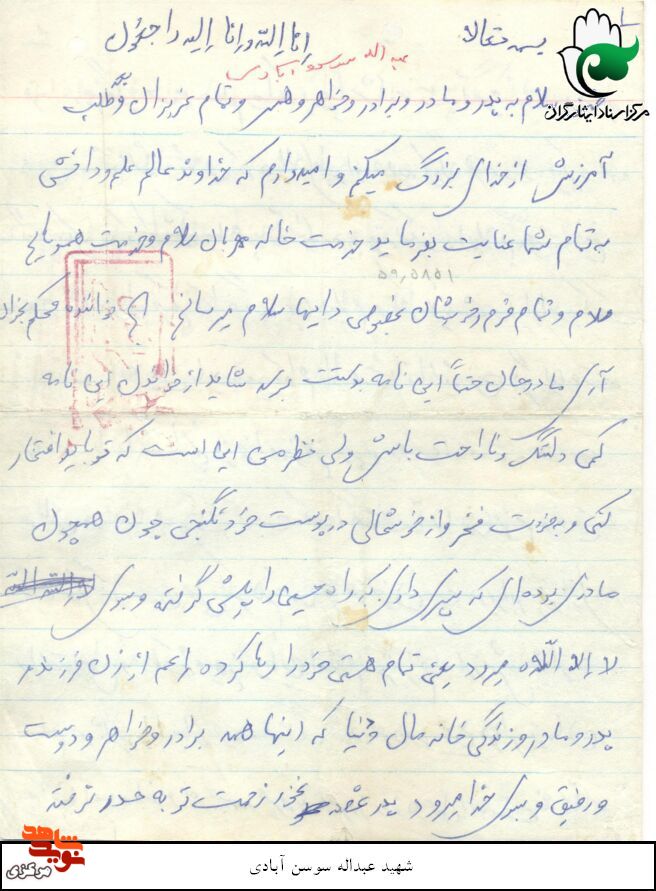 بسمه تعالا انا الله و انا الیه راجعون
عبداله سوسن آبادی
مرکز اسناد ایثارگران
سلام به پدر و مادر و برادر و خواهر و همسر و تمام عزیزان و طلب
آمرزش از خدای بزرگ میکنم و امیدوارم که خداوند عالم علم و دانشی
به تمام شما عنایت بفرماید خدمت خاله سلام و خدمت
۵۹٫۵۸۵۱
سلام و تمام قوم و خویشان بخصوص دایها سلام میرسانم خواننده محکم بخوان
آری مادر جان حتماً این نامه بدستت برسد شاید از خواندن این نامه
کمی دلتنگ و ناراحت باشی ولی نظر من این است که تو باید افتخار
کنی و به خودت فخر و از خوشحالی در پوست خود نگنجی چون همچون
مادری بوده‌ای که پسری داری که راه حسین را پیش گرفته و بسوی
لا اله الا الله میرود یعنی تمام هستی خود را رها کرده اعم از زن فرزند
پدر و مادر و زندگی خانه مال دنیا که اینها همه برادر و خواهر و دوست
و رفیق و بسوی خدا میرود پدر
شهید عبداله سوسن آبادی
نوید شاهد
مرکزی